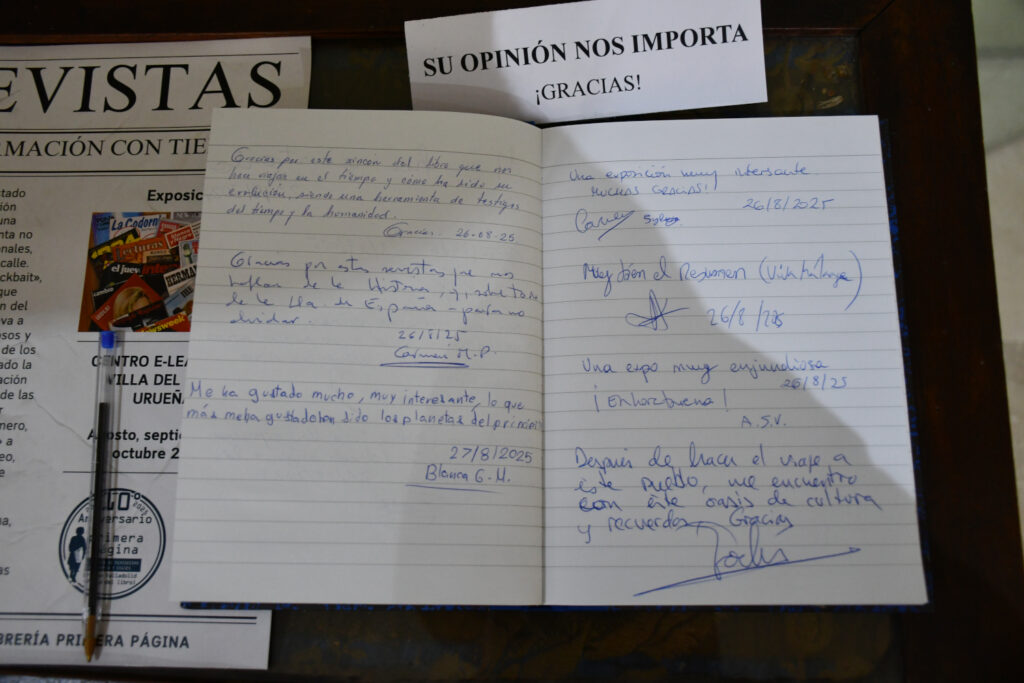 SU OPINIÓN NOS IMPORTA
¡GRACIAS!
EVISTAS
RMACIÓN CON TIE
Exposic
La Codorn
Lecturas
el juev
HERMAN
Newsweek
stado
ción
una
nta no
onales,
calle.
ickbait»,
que
n del
eva a
osos y
de los
ado la
ación
de las
r
énero,
» a
eo,
te
na,
as
CENTRO E-LEA
VILLA DEL
URUEÑ
Agosto, septi
octubre 2
Aniversario
primera
página
BRERÍA PRIMERA PÁGINA
Gracias por este rincón del libro que nos
hace viajar en el tiempo y cómo ha sido su
evolución, siendo una herramienta de testigos
del tiempo y la humanidad.
Gracias. 26-08-25
Gracias por estas revistas que nos
hablan de la Historia, y, sobre todo
de la Ha. de España - para no
olvidar.
26/8/25
Carmen M.P.
Me ha gustado mucho, muy interesante, lo que
más me ha gustado han sido los planetas del principi
27/8/2025
Blanca G.M.
Una exposición muy interesante
MUCHAS GRACIAS!
26/8/2025
Muy bién el Resumen
26/8/25
Una expo muy enjundiosa
26/8/25
¡Enhorabuena!
A.S.V.
Después de hacer el viaje a
este pueblo, me encuentro
con este oasis de cultura
y recuerdos. Gracias